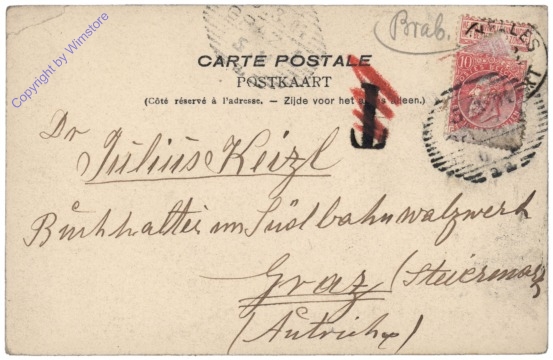 Brab.
CARTE POSTALE
POSTKAART
(Côté réservé à l'adresse. — Zijde voor het adres alleen.)
T
10
Dr
Julius Keizl
Buchhalter im Südbahnwalzwerk
Graz (Steiermark)
(Autriche)
Copyright by Wimstore